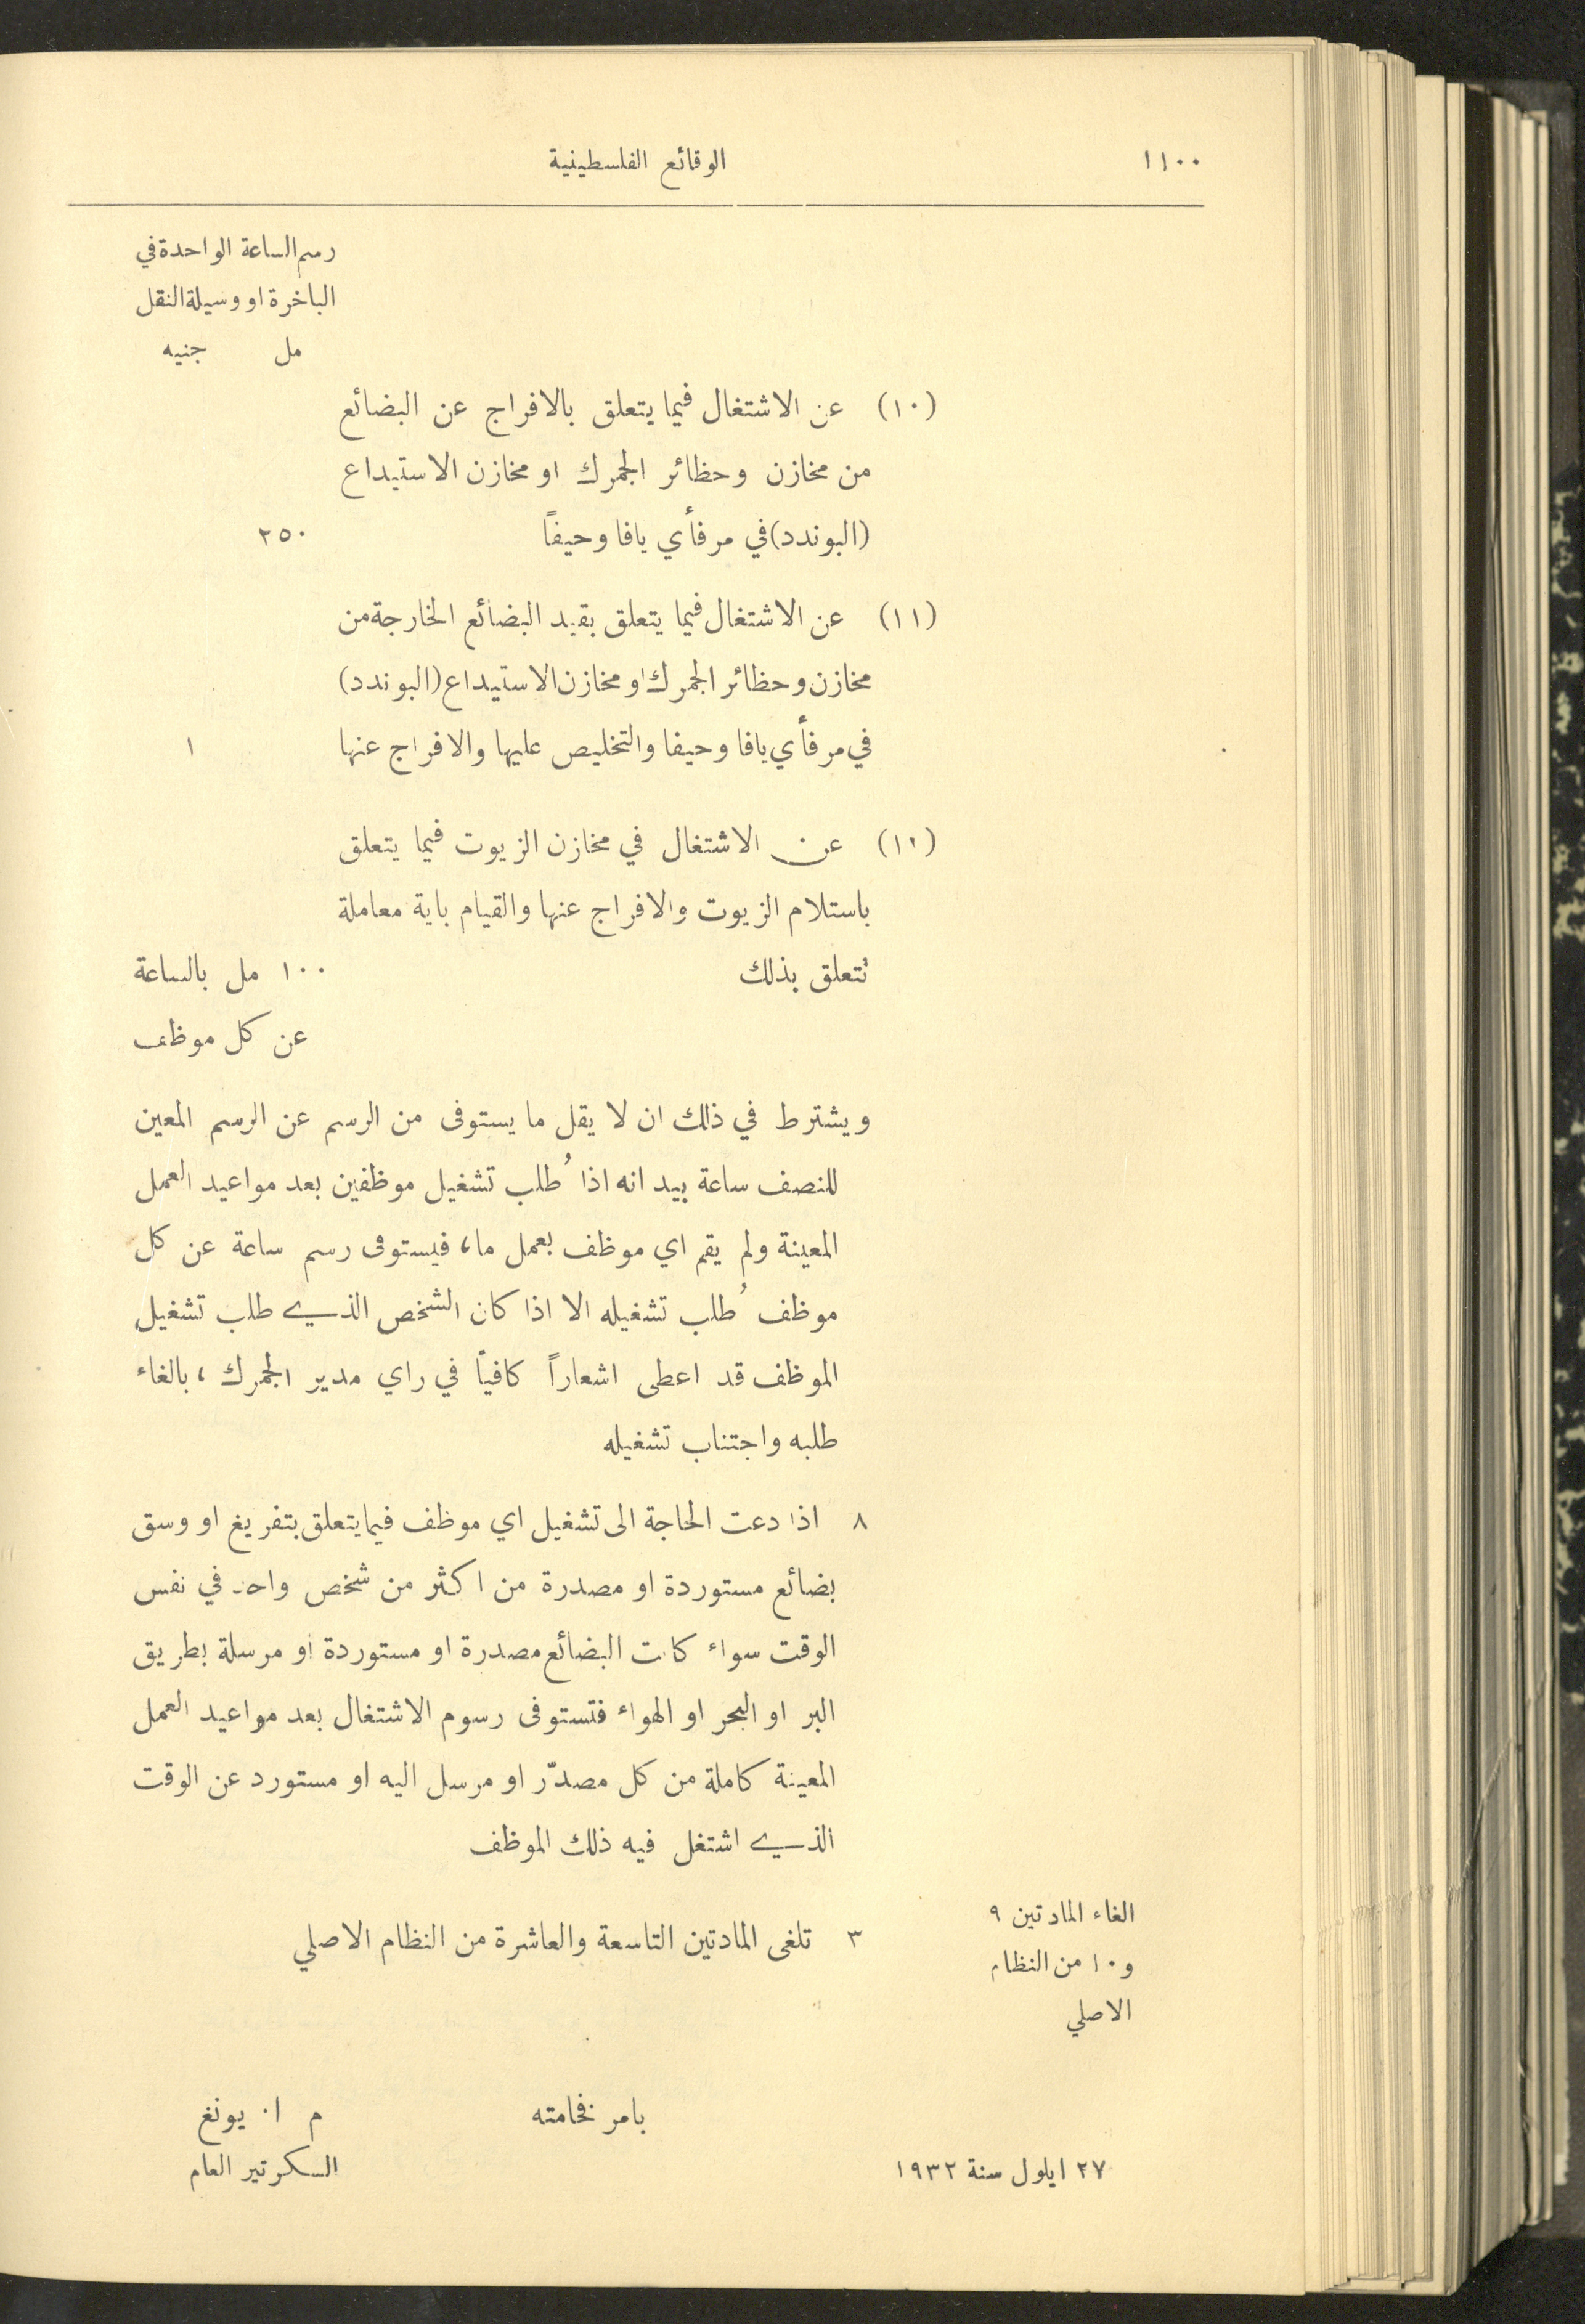 ١١٠٠
الوقائع الفلسطينية
رسم الساعة الواحدة في
الباخرة او وسيلة النقل
مل جنيه
(١٠) عن الاشتغال فيما يتعلق بالافراج عن البضائع
من مخازن وحظائر الجمرك او مخازن الاستيداع
(البوندد) في مرفأي يافا وحيفاً ٢٥٠
(١١) عن الاشتغال فيما يتعلق بقيد البضائع الخارجة من
مخازن وحظائر الجمرك او مخازن الاستيداع (البوندد)
في مرفأي يافا وحيفا والتخليص عليها والافراج عنها ١
(١٢) عن الاشتغال في مخازن الزيوت فيما يتعلق
باستلام الزيوت والافراج عنها والقيام باية معاملة
تتعلق بذلك ١٠٠ مل بالساعة
عن كل موظف
ويشترط في ذلك ان لا يقل ما يستوفى من الرسم عن الرسم المعين
للنصف ساعة بيد انه اذا طُلب تشغيل موظفين بعد مواعيد العمل
المعينة ولم يقم اي موظف بعمل ما، فيستوفى رسم ساعة عن كل
موظف طُلب تشغيله الا اذا كان الشخص الذي طلب تشغيل
الموظف قد اعطى اشعاراً كافياً في راي مدير الجمرك، بالغاء
طلبه واجتناب تشغيله
٨ اذا دعت الحاجة الى تشغيل اي موظف فيما يتعلق بتفريغ او وسق
بضائع مستوردة او مصدرة من اكثر من شخص واحد في نفس
الوقت سواء كانت البضائع مصدرة او مستوردة او مرسلة بطريق
البر او البحر او الهواء فتستوفى رسوم الاشتغال بعد مواعيد العمل
المعينة كاملة من كل مصدّر او مرسل اليه او مستورد عن الوقت
الذي اشتغل فيه ذلك الموظف
الغاء المادتين ٩
و١٠ من النظام
الاصلي
٣ تلغى المادتين التاسعة والعاشرة من النظام الاصلي
بامر فخامته
م ا. يونغ
السكرتير العام
٢٧ ايلول سنة ١٩٣٢